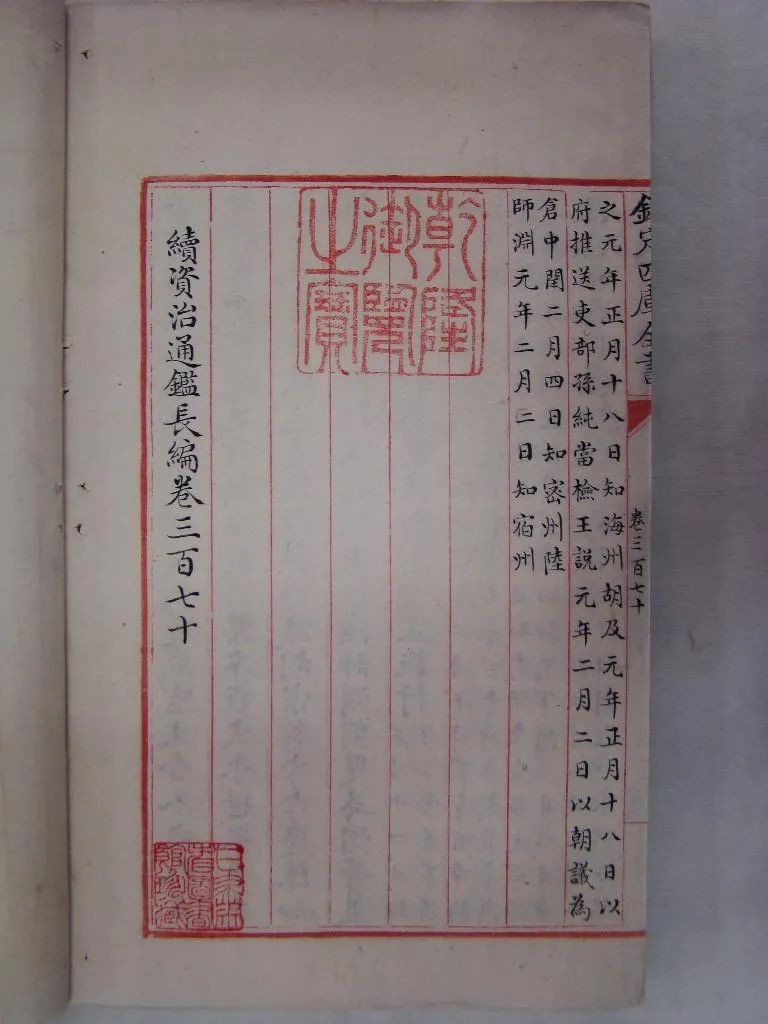 欽定四庫全書
卷三百七十
之元年正月十八日知海州胡及元年正月十八日以
府推送吏部孫純當檢王説元年二月二日以朝議為
倉中閏二月四日知密州陸
師淵元年二月二日知宿州
乾隆御覽之寶
續資治通鑑長編卷三百七十